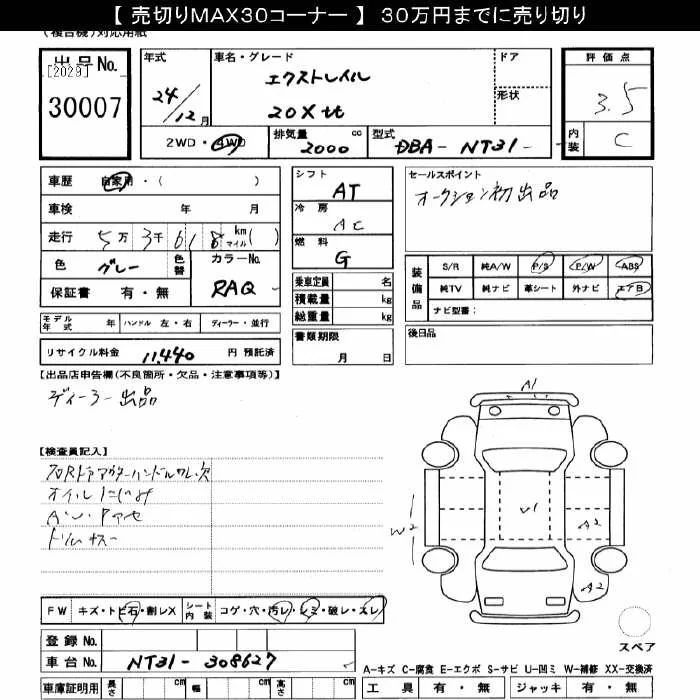 【 売切りMAX30コーナー 】 30万円までに売り切り
(複合機)対応用紙
出品No. [2029] 30007
年式 24/12月
車名・グレード エクストレイル 20Xtt
ドア
形状
評価点 3.5
内装 C
2WD・4WD 排気量 2000 cc 型式 DBA- NT31 -
車歴 自家用・( )
車検 年 月
走行 5万 3千 6 1 8 km マイル ( )
色 グレー 色替 カラーNo. RAQ
保証書 有・無
モデル年式 年 ハンドル 左・右 ディーラー・並行
リサイクル料金 11,440 円 預託済
シフト AT
冷房 AC
燃料 G
乗車定員 名
積載量 kg
総重量 kg
書類期限 月 日
セールスポイント
オークション初出品
装備品 S/R 純A/W P/S P/W ABS
純TV 純ナビ 革シート 外ナビ エアB
ナビ型番:
後日品
【出品店申告欄(不良箇所・欠品・注意事項等)】
ディーラー出品
【検査員記入】
オイルにじみ
A1
V1
W2
A2
A2
FW キズ・トビ石・割レX シート内装 コゲ・穴・汚レ・シミ・破レ・スレ
登録No.
車台No. NT31-308627
車庫証明用 長さ cm 幅 cm 高さ cm
スペア
A-キズ C-腐食 E-エクボ S-サビ U-凹ミ W-補修 XX-交換済
工具 有・無 ジャッキ 有・無